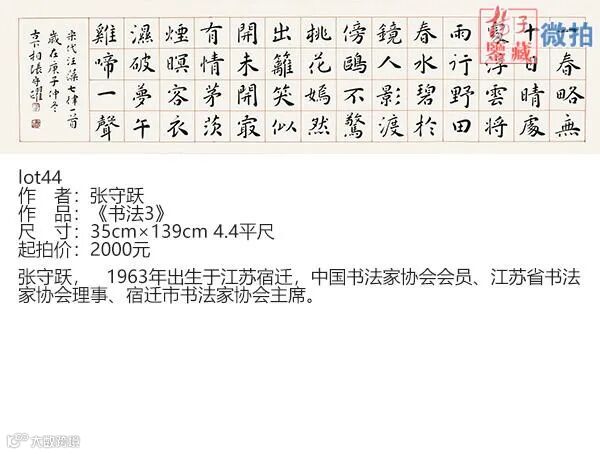 一春略無
十日晴處
處浮雲將
雨行野田
春水碧於
鏡人影渡
傍鷗不驚
桃花嫣然
出籬笑似
開未開最
有情茅茨
煙暝客衣
濕破夢午
雞啼一聲
宋代汪藻七律一首
歲在庚子仲冬
古下相張守躍
子
鑒藏
微拍
lot44
作 者：张守跃
作 品：《书法3》
尺 寸：35cm×139cm 4.4平尺
起拍价：2000元
张守跃， 1963年出生于江苏宿迁，中国书法家协会会员、江苏省书法
家协会理事、宿迁市书法家协会主席。